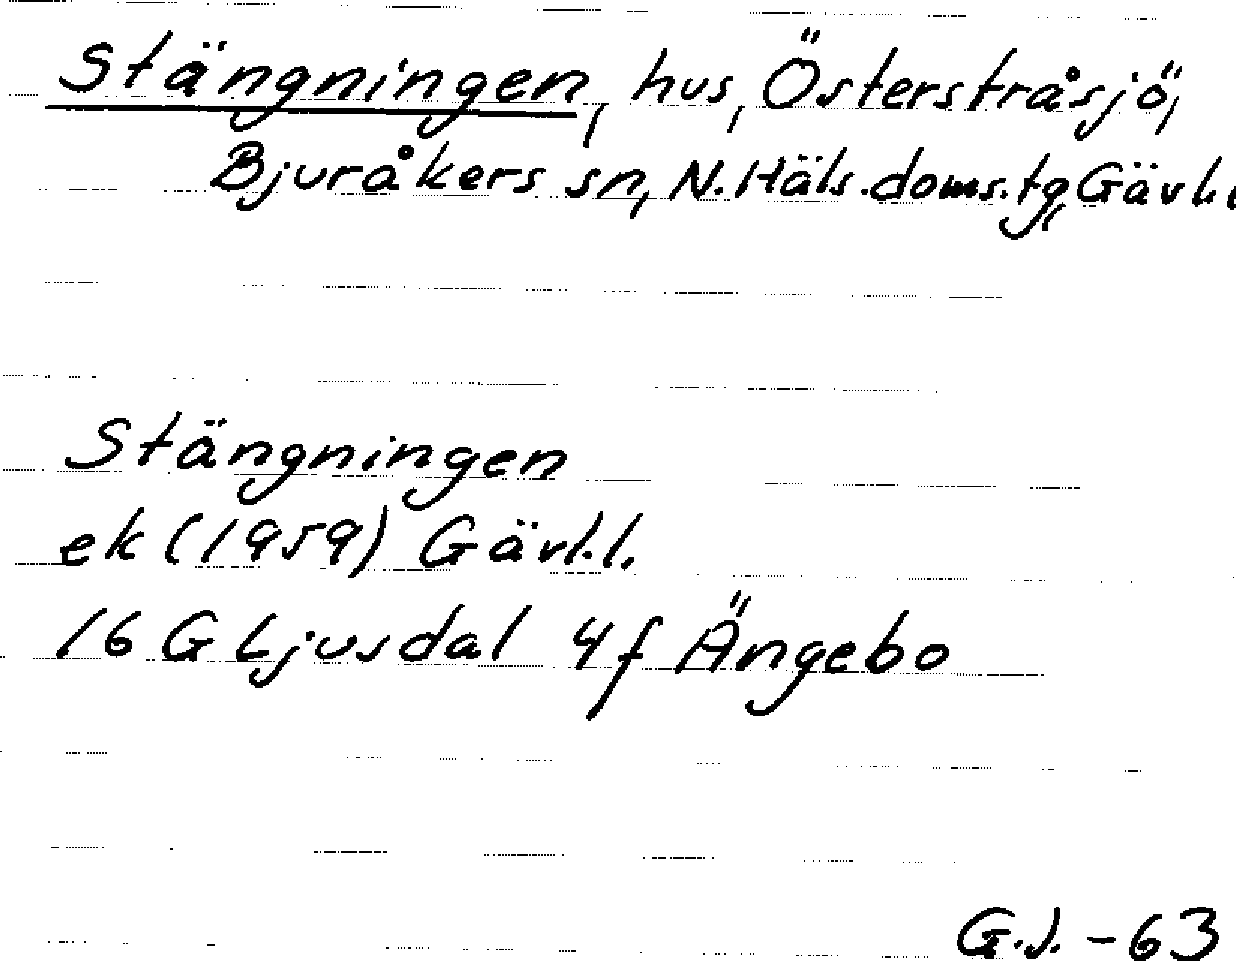 Stängningen, hus, Österstråsjö,
Bjuråkers sn, N. Häls. doms. tg, Gävl. l
Stängningen
ek (1959) Gävl. l.
16 G Ljusdal 4f Ängebo
G.J. - 63